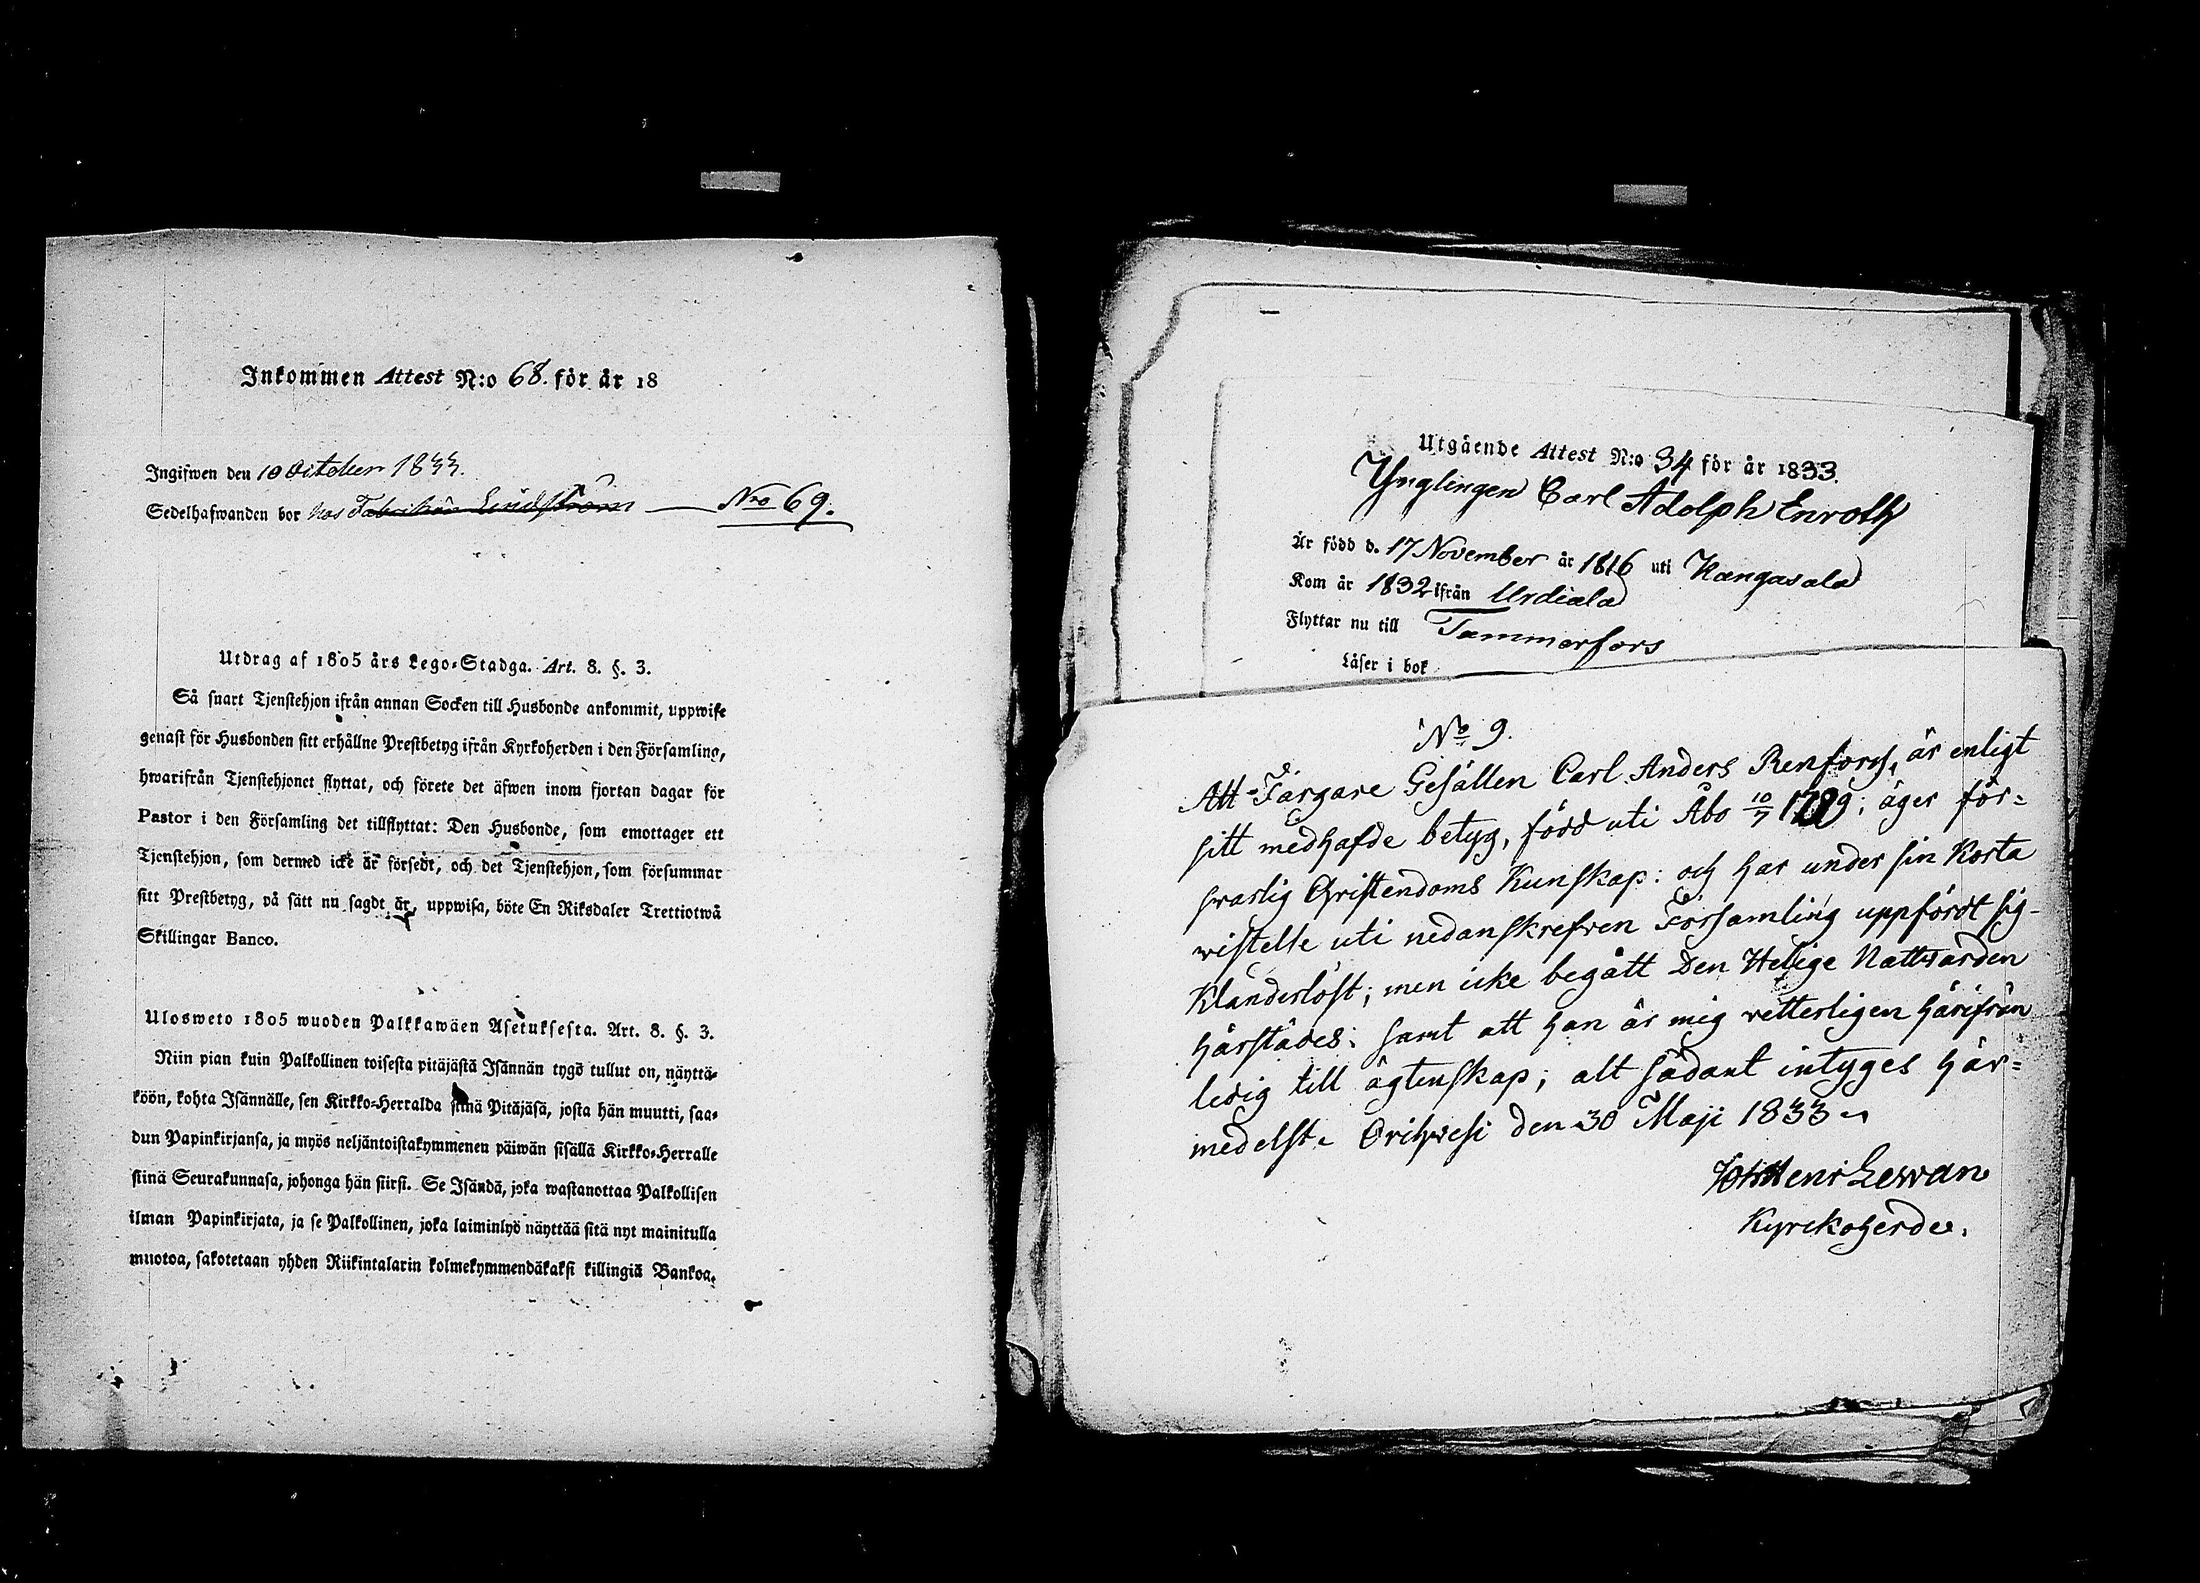 Inkommen Attest N:o 68. för år 18
Ingifwen den 10 October 1833.
Sedelhafwanden bor hos Fabrikör Lindström — Nro 69.
Utdrag af 1805 års Lego-Stadga. Art. 8. §. 3.
Så snart Tjenstehjon ifrån annan Socken till Husbonde ankommit, uppwise
genast för Husbonden sitt erhållne Prestbetyg ifrån Kyrkoherden i den Församling,
hwarifrån Tjenstehjonet flyttat, och förete det äfwen inom fjortan dagar för
Pastor i den Församling det tillflyttat: Den Husbonde, som emottager ett
Tjenstehjon, som dermed icke är försedt, och det Tjenstehjon, som försummar
sitt Prestbetyg, på sätt nu sagdt är, uppwisa, böte En Riksdaler Trettiotwå
Skillingar Banco.
Ulosweto 1805 wuoden Palkkawäen Asetuksesta. Art. 8. §. 3.
Niin pian kuin Palkollinen toisesta pitäjästä Isännän tygö tullut on, näyttä-
köön, kohta Isännälle, sen Kirkko-Herralda siinä Pitäjäsä, josta hän muutti, saa-
dun Papinkirjansa, ja myös neljäntoistakymmenen päiwän sisällä Kirkko-Herralle
siinä Seurakunnasa, johonga hän siirsi. Se Isändä, joka wastanottaa Palkollisen
ilman Papinkirjata, ja se Palkollinen, joka laiminlyö näyttää sitä nyt mainitulla
muotoa, sakotetaan yhden Riikintalarin kolmekymmendäkaksi killingiä Bankoa.
Utgående Attest N:o 34 för år 1833.
Ynglingen Carl Adolph Enroth
Är född d. 17 November år 1816 uti Kangasala
Kom år 1832 ifrån Urdiala
Flyttar nu till Tammerfors
Läser i bok
No 9.
Att Färgare Gesällen Carl Anders Renfors, är enligt
sitt medhafde betyg, född uti Åbo 10/7 1789; äger för-
swarlig Christendoms Kunskap: och har under sin Korta
wistelse uti nedanskrefven Församling uppfördt sig
Klanderlöst; men icke begått Den Helige Nattvarden
härstädes: samt att han är mig vetterligen härifrån
ledig till ägtenskap; alt sådant intyges här-
medelst. Orihvesi den 30 Maji 1833
Henr Lewan
Kyrckoherde.